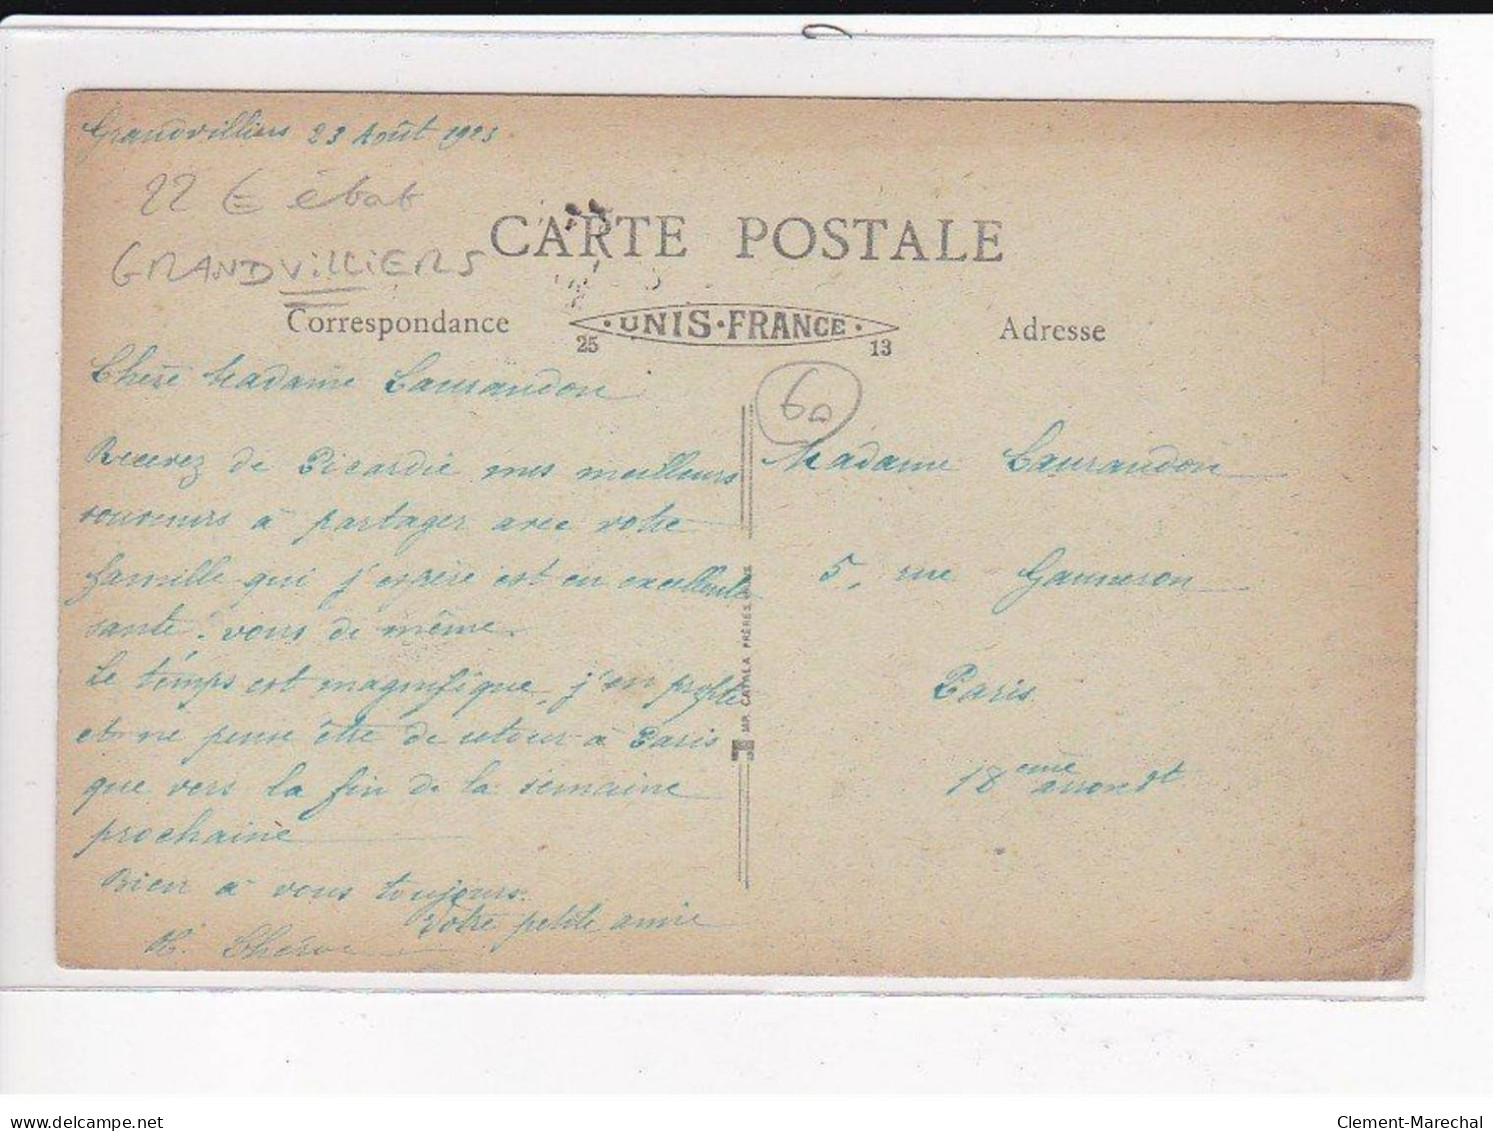 Grandvilliers 23 Août 1923
22 € état
GRANDVILLIERS
CARTE POSTALE
Correspondance
UNIS-FRANCE
25
13
Adresse
60
Chère Madame Caurandon
Recevez de Picardie mes meilleurs
souvenirs à partager avec votre
famille qui j'espère est en excellente
santé. vous de même.
Le temps est magnifique, j'en profite
et ne pense être de retour à Paris
que vers la fin de la semaine
prochaine
Bien à vous toujours.
Votre petite amie
Madame Caurandon
5, rue Ganneron
Paris
18eme arrondt
IMP. CATALA FRÈRES, PARIS
delcampe.net
Clement-Marechal